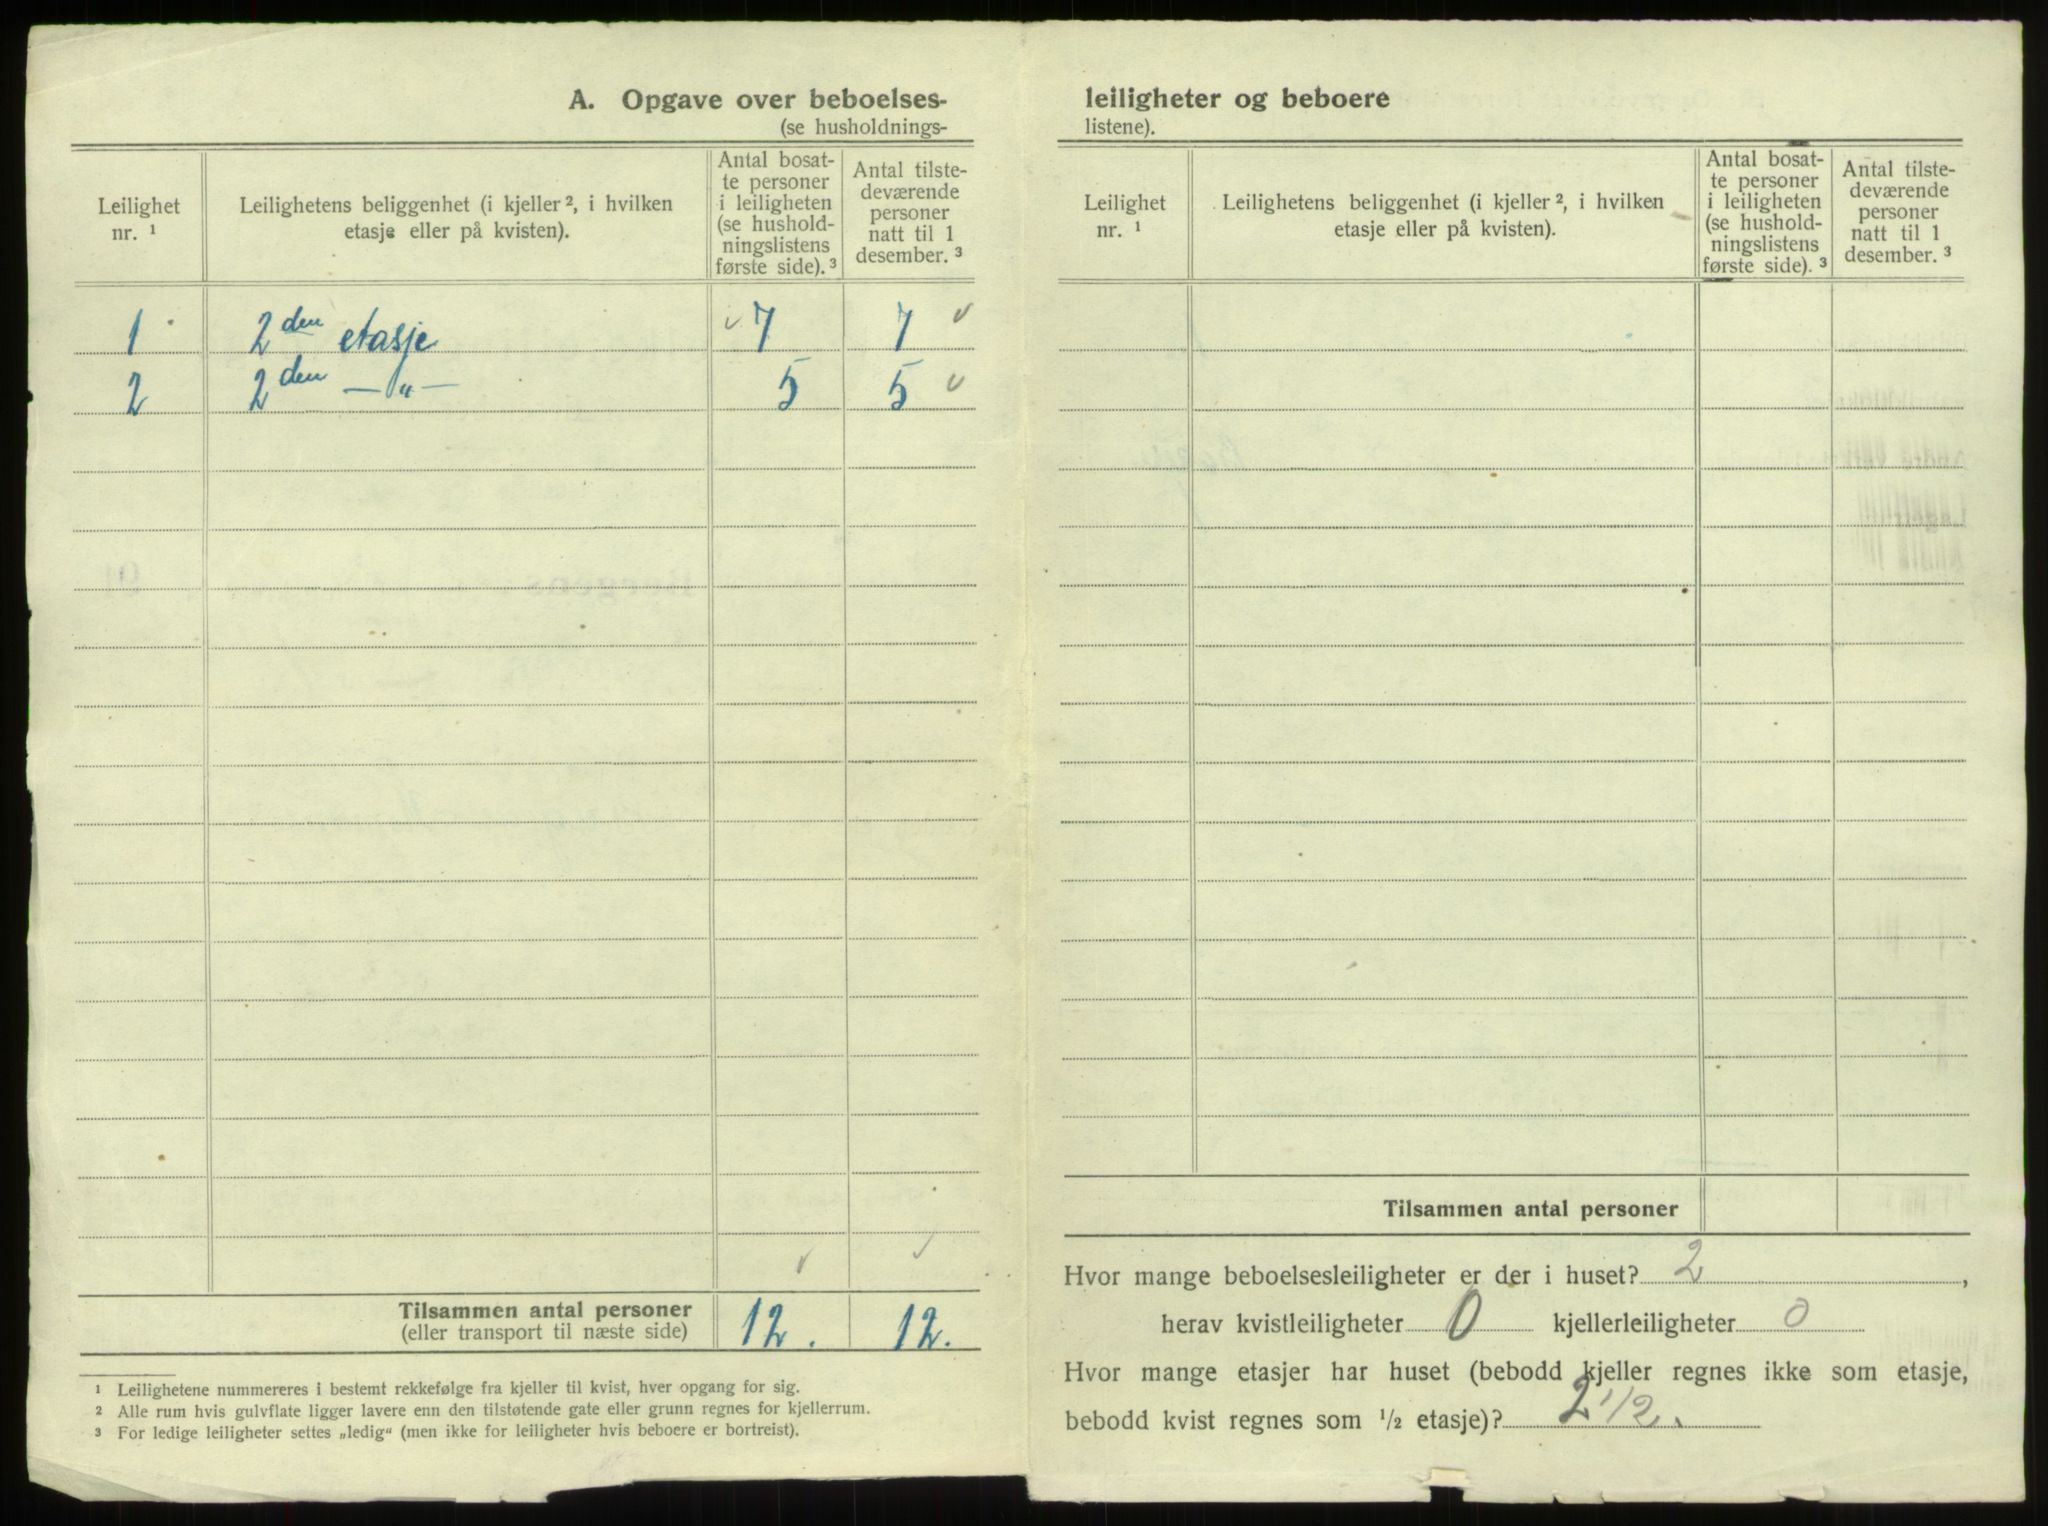 A. Opgave over beboelses-
(se husholdnings-
Leilighet nr. ¹
Leilighetens beliggenhet (i kjeller ², i hvilken
etasje eller på kvisten).
Antal bosat-
te personer
i leiligheten
(se hushold-
ningslistens
første side). ³
Antal tilste-
deværende
personer
natt til 1
desember. ³
1 2den etasje 7 7
2 2den —„— 5 5
Tilsammen antal personer
(eller transport til næste side) 12. 12.
¹ Leilighetene nummereres i bestemt rekkefølge fra kjeller til kvist, hver opgang for sig.
² Alle rum hvis gulvflate ligger lavere enn den tilstøtende gate eller grunn regnes for kjellerrum.
³ For ledige leiligheter settes „ledig“ (men ikke for leiligheter hvis beboere er bortreist).
leiligheter og beboere
listene).
Leilighet nr. ¹
Leilighetens beliggenhet (i kjeller ², i hvilken
etasje eller på kvisten).
Antal bosat-
te personer
i leiligheten
(se hushold-
ningslistens
første side). ³
Antal tilste-
deværende
personer
natt til 1
desember. ³
Tilsammen antal personer
Hvor mange beboelsesleiligheter er der i huset? 2,
herav kvistleiligheter 0 kjellerleiligheter 0
Hvor mange etasjer har huset (bebodd kjeller regnes ikke som etasje,
bebodd kvist regnes som ½ etasje)? 2 1/2.